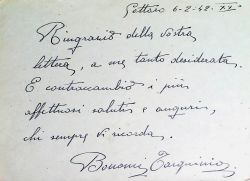 6-2-42. XX°
Ringrazio della vostra
lettera, a me tanto desiderata.
E contraccambio i più
affettuosi saluti e auguri,
chi sempre vi ricorda.
Bonomi Tarquinio